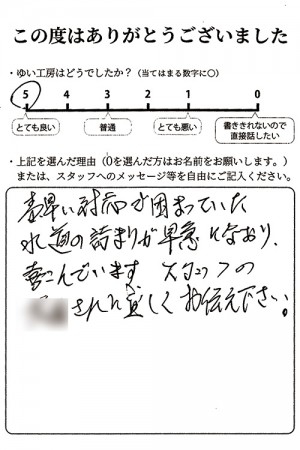 この度はありがとうございました
・ゆい工房はどうでしたか？（当てはまる数字に○）
5 4 3 2 1 0
とても良い 普通 とても悪い 書ききれないので直接話したい
・上記を選んだ理由（0を選んだ方はお名前をお願いします。）
または、スタッフへのメッセージ等を自由にご記入ください。
素早い対応が困まっていた
水道の詰まりが早急になおり、
喜こんでいます スタッフの
さんに宜しくお伝え下さい。